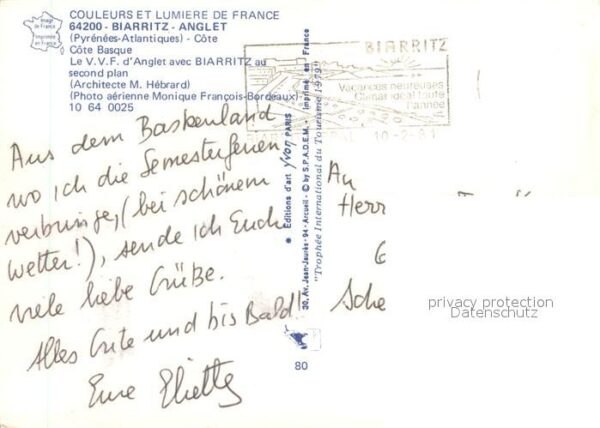 COULEURS ET LUMIERE DE FRANCE
64200 - BIARRITZ - ANGLET
(Pyrénées-Atlantiques) - Côte
Côte Basque
Le V.V.F. d'Anglet avec BIARRITZ au
second plan
(Architecte M. Hébrard)
(Photo aérienne Monique François-Bordeaux)
10 64 0025
Image de France
Imprimée en France
Aus dem Baskenland
wo ich die Semesterferien
verbringe, (bei schönem
Wetter!), sende ich Euch
viele liebe Grüße.
Alles Gute und bis Bald!!
Eure
Editions d'art yvon PARIS
30, Av. Jean-Jaurès - 94 - Arcueil - © by S.P.A.D.E.M. - Imprimé en France
"Trophée International du Tourisme 1979"
80
BIARRITZ
Vacances heureuses
Climat idéal toute
l'année
10-2-81
An
Herr
Sche
privacy protection
Datenschutz